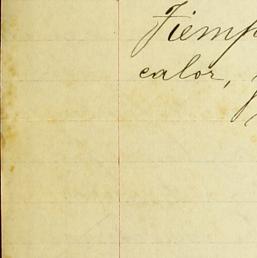 Tiemp
calor,